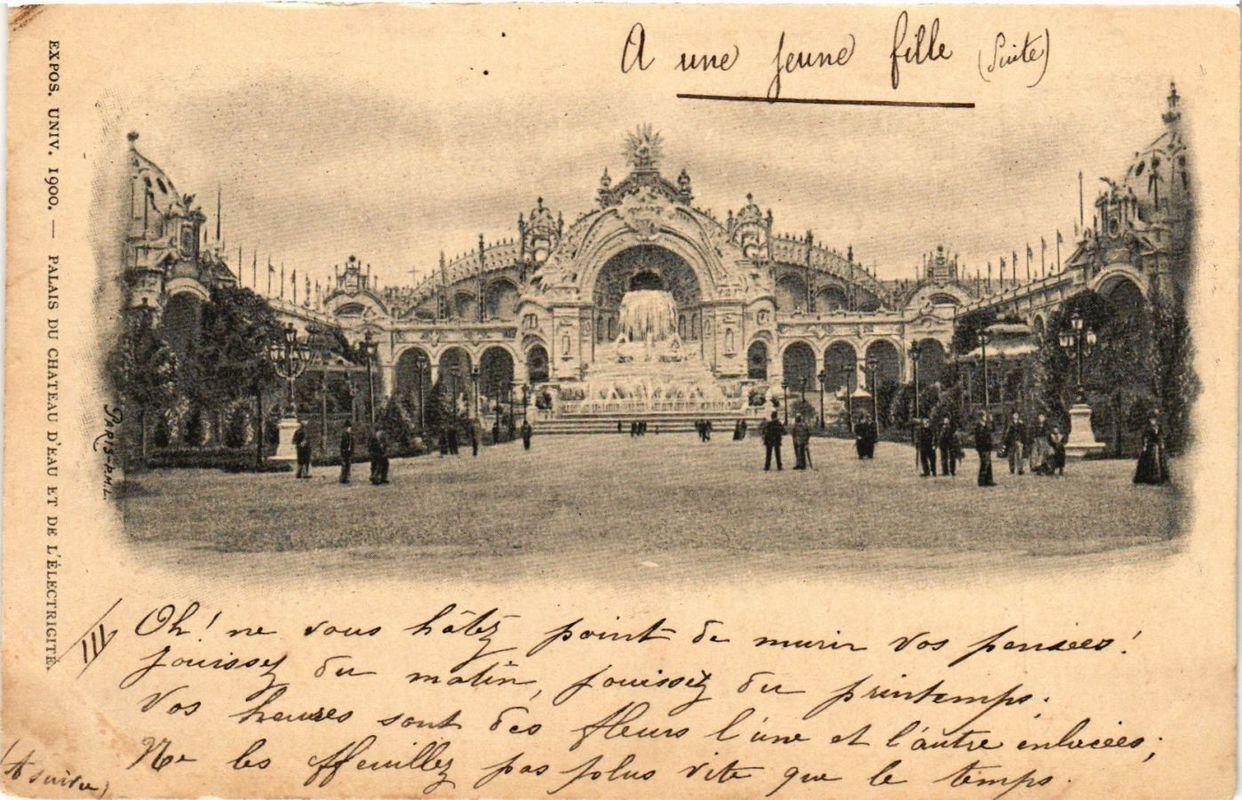 A une jeune fille (Suite)
EXPOS. UNIV. 1900. — PALAIS DU CHATEAU D'EAU ET DE L'ÉLECTRICITÉ.
PARIS-P.H.L.
III
Oh! ne vous hâtez point de mûrir vos pensées!
Jouissez du matin, jouissez du printemps.
Vos heures sont des fleurs l'une et l'autre enlacées;
Ne les effeuillez pas plus vite que le temps.
(A suivre)